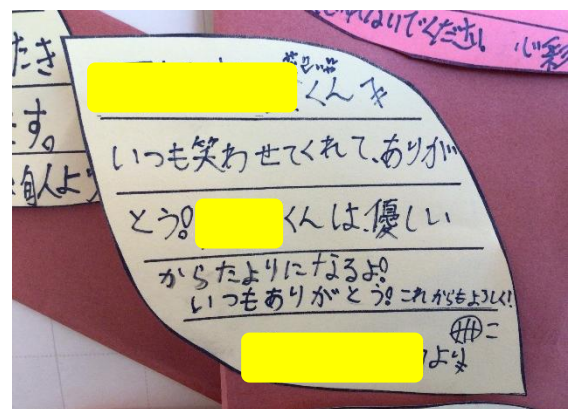 くんへ
いつも笑わせてくれて、ありが
とう!くんは、優しい
からたよりになるよ!
いつもありがとう!これからもよろしく!
より
たき
す。
人より
ないでください 心彩